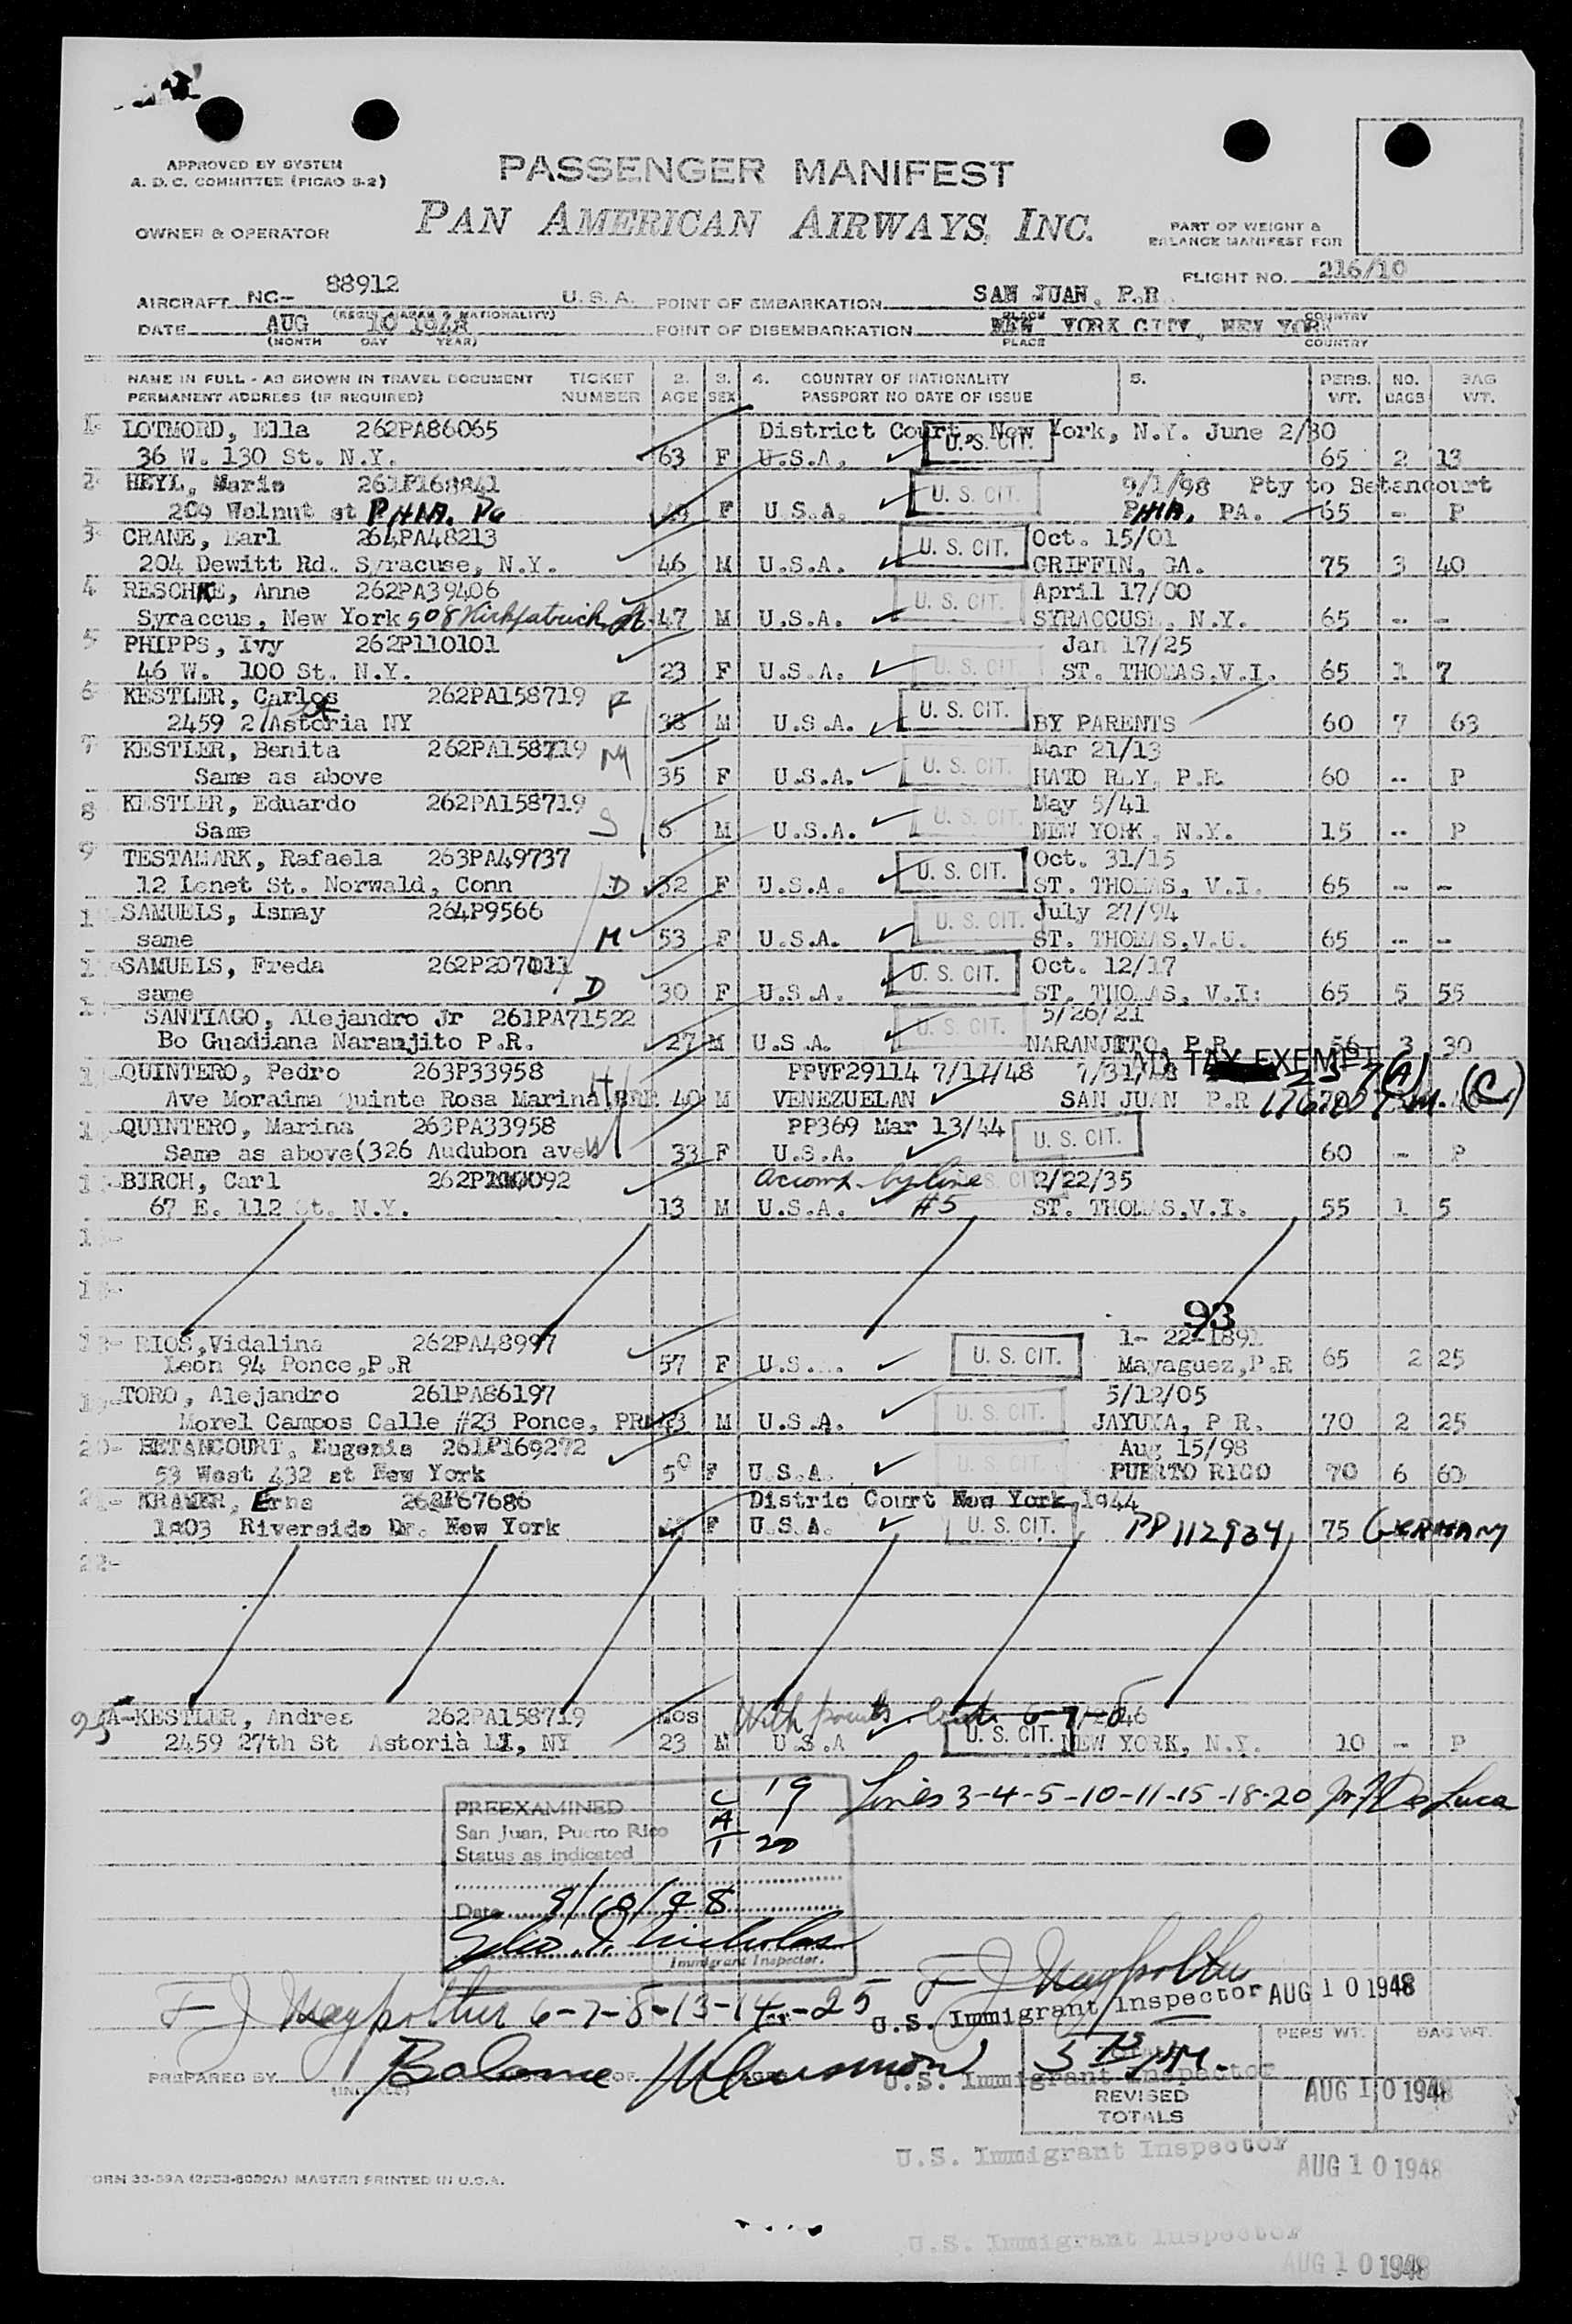 APPROVED BY SYSTEM
A. D. C. COMMITTEE (PICAO S-2)
PASSENGER MANIFEST
PAN AMERICAN AIRWAYS, INC.
OWNER & OPERATOR
PART OF WEIGHT &
BALANCE MANIFEST FOR
FLIGHT NO. 216/10
AIRCRAFT NC- 88912 U. S. A. POINT OF EMBARKATION SAN JUAN, P.R.
DATE AUG 10 1948 POINT OF DISEMBARKATION NEW YORK CITY, NEW YORK
(MONTH DAY YEAR) PLACE COUNTRY
NAME IN FULL - AS SHOWN IN TRAVEL DOCUMENT TICKET 2. 3. 4. COUNTRY OF NATIONALITY 5. PERS. NO. BAG
PERMANENT ADDRESS (IF REQUIRED) NUMBER AGE SEX PASSPORT NO DATE OF ISSUE WT. BAGS WT.
1- LOTMORD, Ella 262PA86065 District Court, New York, N.Y. June 2/30
36 W. 130 St. N.Y. 63 F U.S.A. U. S. CIT. 65 2 13
2- HEYL, Marie 261P168841 U. S. CIT. 9/1/98 Pty to Betancourt
209 Walnut st PHIA. Pa F U.S.A. PHIA, PA. 65 - P
3- CRANE, Earl 264PA48213 U. S. CIT. Oct. 15/01
204 Dewitt Rd. Syracuse, N.Y. 46 M U.S.A. GRIFFIN, GA. 75 3 40
4- RESCHKE, Anne 262PA39406 U. S. CIT. April 17/00
Syraccus, New York 508 Kirkpatrick St. 47 M U.S.A. SYRACCUSE, N.Y. 65 -- -
5- PHIPPS, Ivy 262P110101 Jan 17/25
46 W. 100 St. N.Y. 23 F U.S.A. U. S. CIT ST. THOMAS.V.I. 65 1 7
6- KESTLER, Carlos 262PA158719 F U. S. CIT.
2459 27 Astoria NY 38 M U.S.A. BY PARENTS 60 7 63
7- KESTLER, Benita 262PA158719 M U. S. CIT. Mar 21/13
Same as above 35 F U.S.A. HATO REY, P.R. 60 -- P
8 KESTLER, Eduardo 262PA158719 U. S. CIT. May 5/41
Same S 6 M U.S.A. NEW YORK, N.Y. 15 -- P
9 TESTAMARK, Rafaela 263PA49737 U. S. CIT. Oct. 31/15
12 Lenet St. Norwald, Conn D 32 F U.S.A. ST. THOMAS, V.I. 65 -- --
SAMUELS, Ismay 264P9566 U. S. CIT. July 27/94
same M 53 F U.S.A. ST. THOMAS.V.U. 65 -- --
SAMUELS, Freda 262P207011 U. S. CIT. Oct. 12/17
same D 30 F U.S.A. ST. THOMAS, V.I: 65 5 55
SANTIAGO, Alejandro Jr 261PA71522 U. S. CIT. 5/26/21
Bo Guadiana Naranjito P.R. 27 M U.S.A. NARANJITO, P.R. 56 3 30
QUINTERO, Pedro 263P33958 H PPVF29114 7/17/48 7/31/48 TAX EXEMPT
Ave Moraima Quinte Rosa Marina 40 M VENEZUELAN SAN JUAN P.R (C)
QUINTERO, Marina 263PA33958 PP369 Mar 13/44 U. S. CIT.
Same as above(326 Audubon ave W 33 F U.S.A. 60 - P
BIRCH, Carl accomp. by line 2/22/35
67 E. 112 St. N.Y. 13 M U.S.A. #5 ST. THOMAS,V.I. 55 1 5
93
RIOS,Vidalina 262PA48997 1- 22-1891
Leon 94 Ponce,P.R 57 F U.S. U. S. CIT. Mayaguez,P.R 65 2 25
TORO, Alejandro 261PA86197 5/12/05
Morel Campos Calle #23 Ponce, PR 43 M U.S.A. U. S. CIT. JAYUYA, P R. 70 2 25
20- BETANCOURT, Eugenia 261P169272 Aug 15/98
53 West 432 st New York 50 F U.S.A. U. S. CIT. PUERTO RICO 70 6 60
21- KRAMER, Erna 262P67686 Distric Court New York,1944
1803 Riverside Dr. New York F U.S.A. U. S. CIT. PP 112934 75 GERMANY
22-
25 A-KESTLER, Andres 262PA158719 Mos With parents. 6-7/2/46
2459 27th St Astoria LI, NY 23 M U.S.A U. S. CIT. NEW YORK, N.Y. 10 - P
PREEXAMINED C 19 Lines 3-4-5-10-11-15-18-20 De Luca
San Juan, Puerto Rico A 1
Status as indicated T 20
Date 8/10/48
Immigrant Inspector.
6-7-8-13-14-25
U.S. Immigrant Inspector AUG 10 1948
PERS WT. BAG WT.
PREPARED BY
(INITIALS)
U.S. Immigrant Inspector AUG 10 1948
REVISED
TOTALS
U.S. Immigrant Inspector AUG 10 1948
FORM 33-59A MASTER PRINTED IN U.S.A.
U.S. Immigrant Inspector
AUG 10 1948